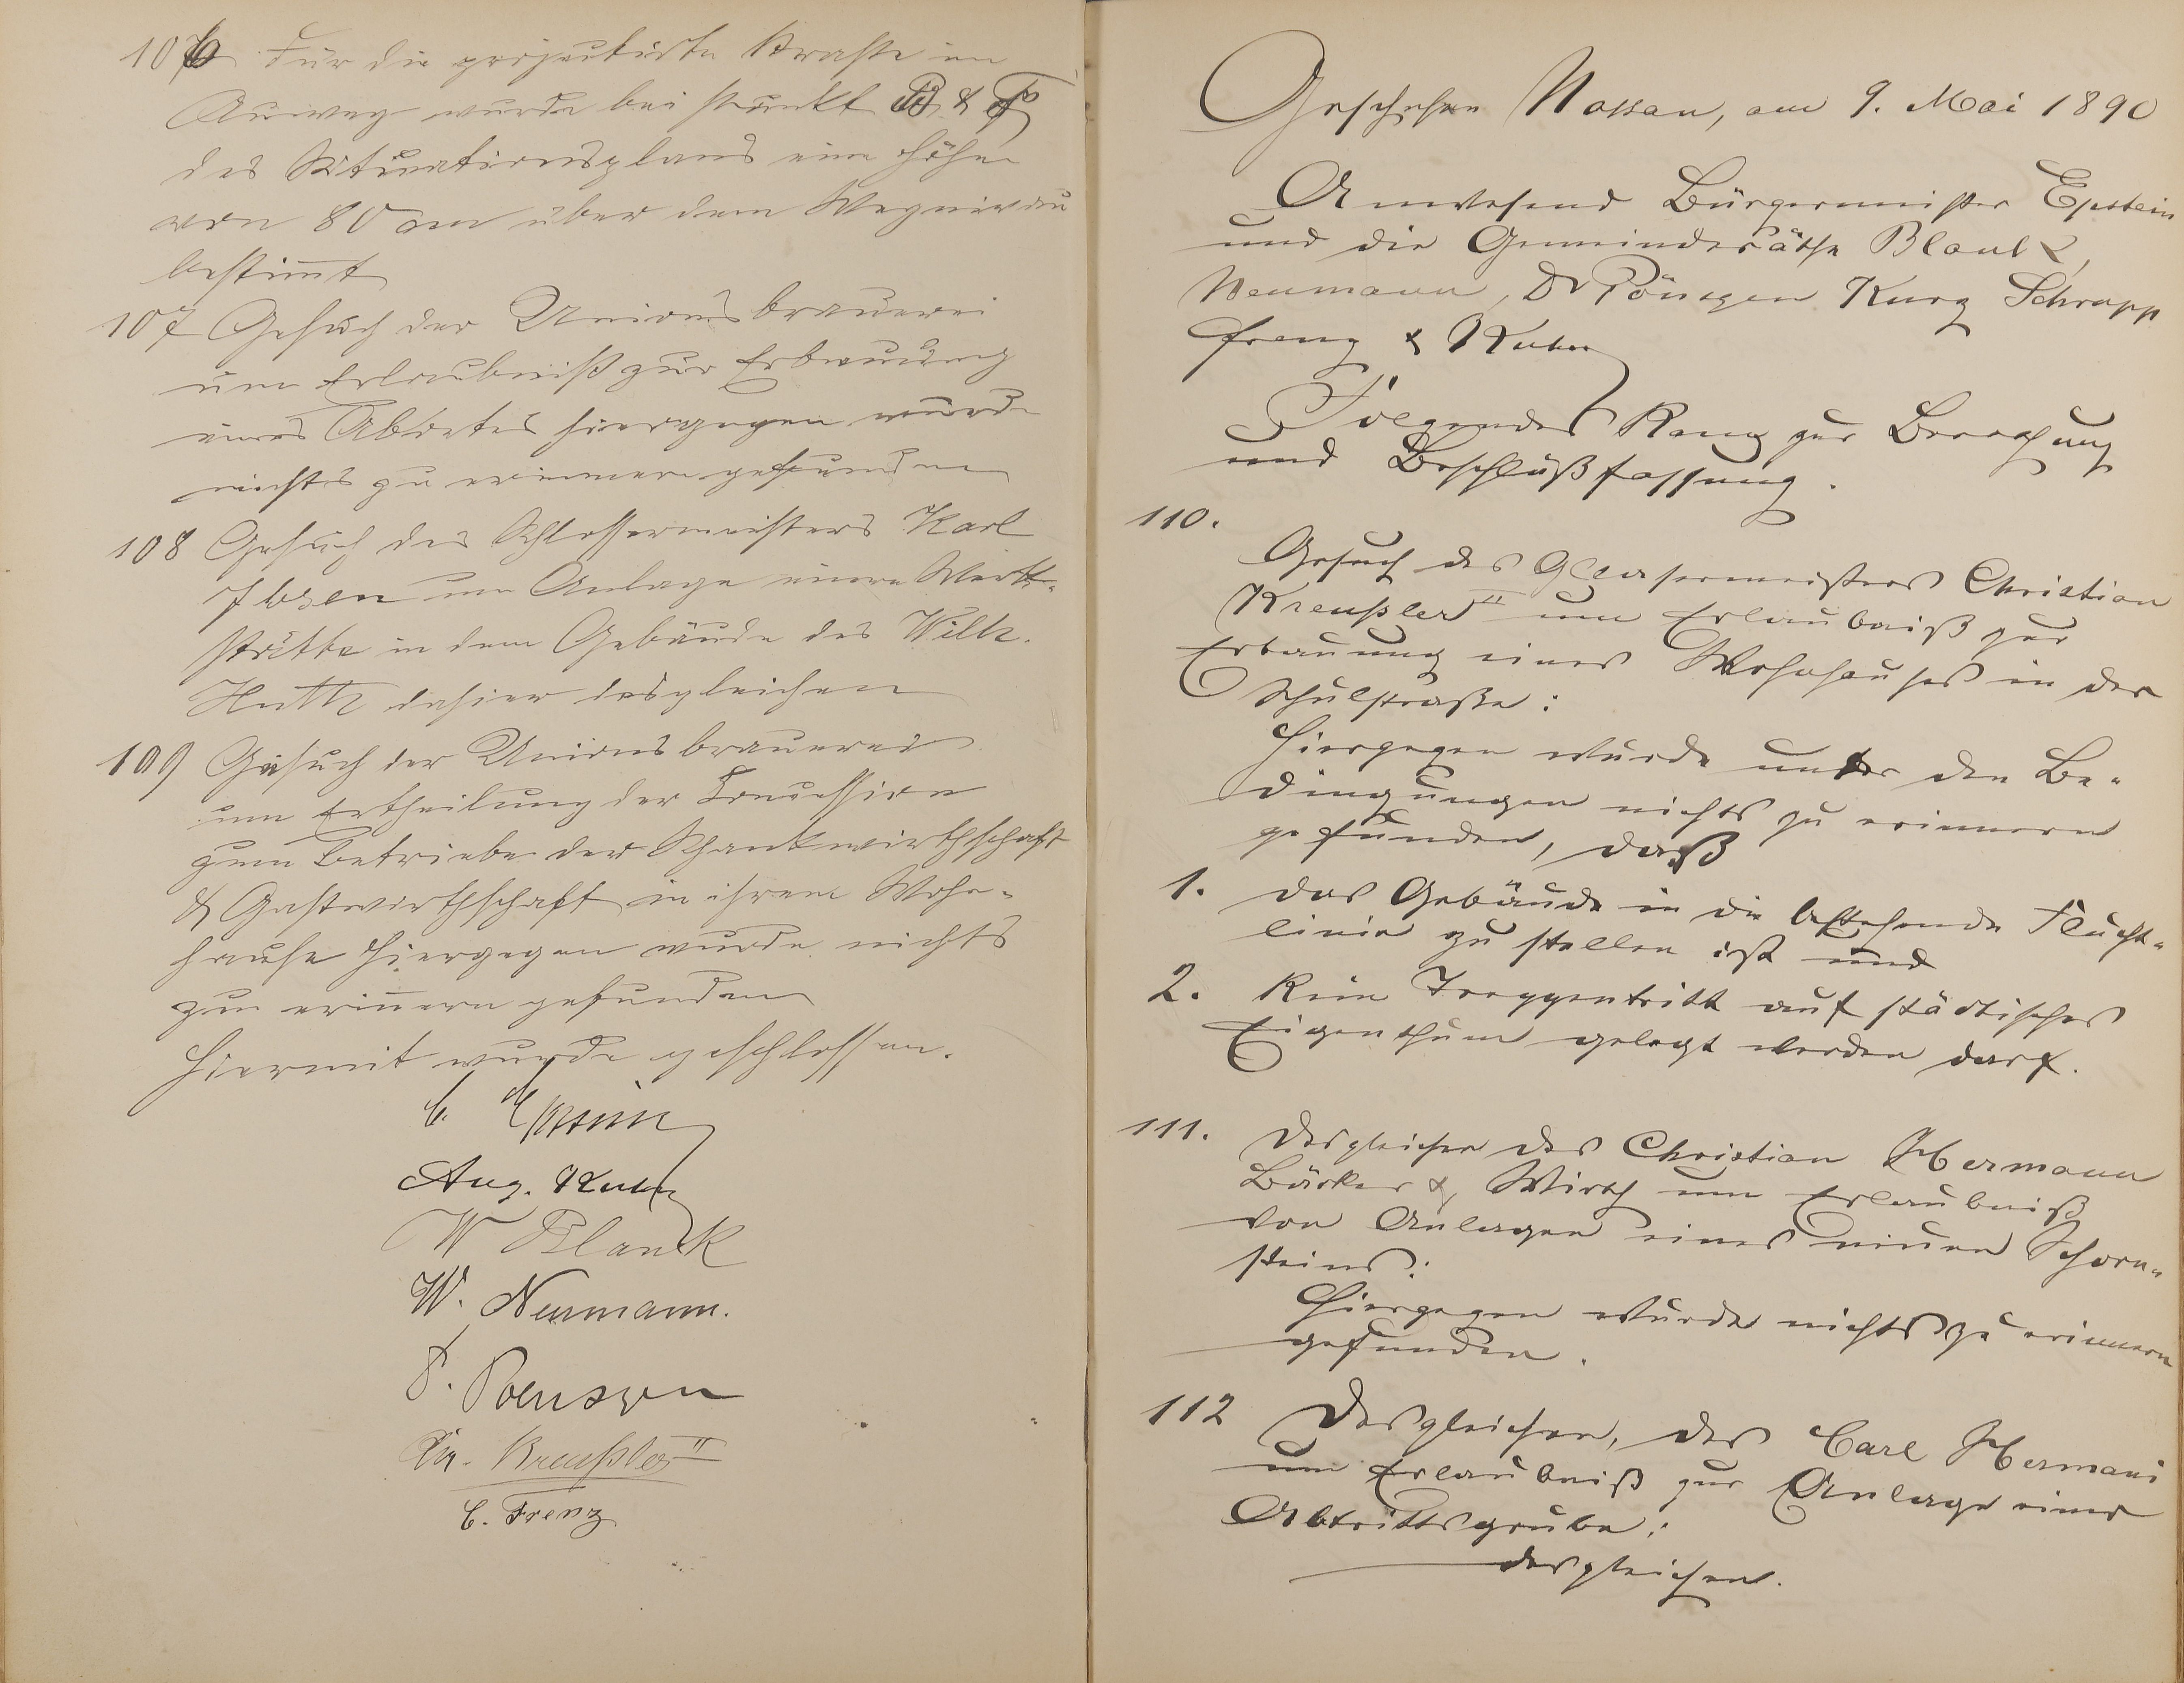 106 Für die projectirte Straße im
Auweg wurde bei Punkt B & F
des Situationsplans eine Höhe
von 80 cm über dem Wegniveau
bestimmt
107 Gesuch der Unionsbrauerei
um Erlaubniß zur Erbauung
eines Abortes hiergegen wurde
nichts zu erinnern gefunden
108 Gesuch des Schlossermeisters Karl
Ibsen um Anlage einer Werk-
stätte in dem Gebäude des Wilh.
Huth dahier desgleichen
109 Gesuch der Unionsbrauerei
um Ertheilung der Concession
zum Betriebe der Schankwirthschaft
& Gastwirthschaft in ihrem Wohn-
hause hiergegen wurde nichts
zu erinnern gefunden
Hiermit wurde geschlossen.
C. Epstein
Aug. Kuhn
W Blank
W. Neumann.
P. Poensgen
Chr. Kreußler II
C. Frenz
Geschehen Nassau, am 9. Mai 1890
Anwesend Bürgermeister Epstein
und die Gemeinderäthe Blank,
Neumann, Dr Pönsgen Kurz Schrupp
Frenz & Kuhn
Folgendes kam zur Berathung
und Beschlußfassung.
110.
Gesuch des Glasermeisters Christian
Kreußler II um Erlaubniß zur
Erbauung eines Wohnhauses in der
Schulstraße:
Hiergegen wurde unter den Be-
dingungen nichts zu erinnern
gefunden, daß
1. das Gebäude in die bestehende Flucht-
linie zu stellen ist und
2. kein Treppentritt auf städtisches
Eigenthum gelegt werden darf.
111. Desgleichen des Christian Hermann
Bäcker & Wirth um Erlaubniß
von Anlagen eines neuen Schorn-
steins:
Hiergegen wurde nichts zu erinnern
gefunden.
112 Desgleichen, des Carl Hermani
um Erlaubniß zur Anlage einer
Abtrittsgrube:
desgleichen.